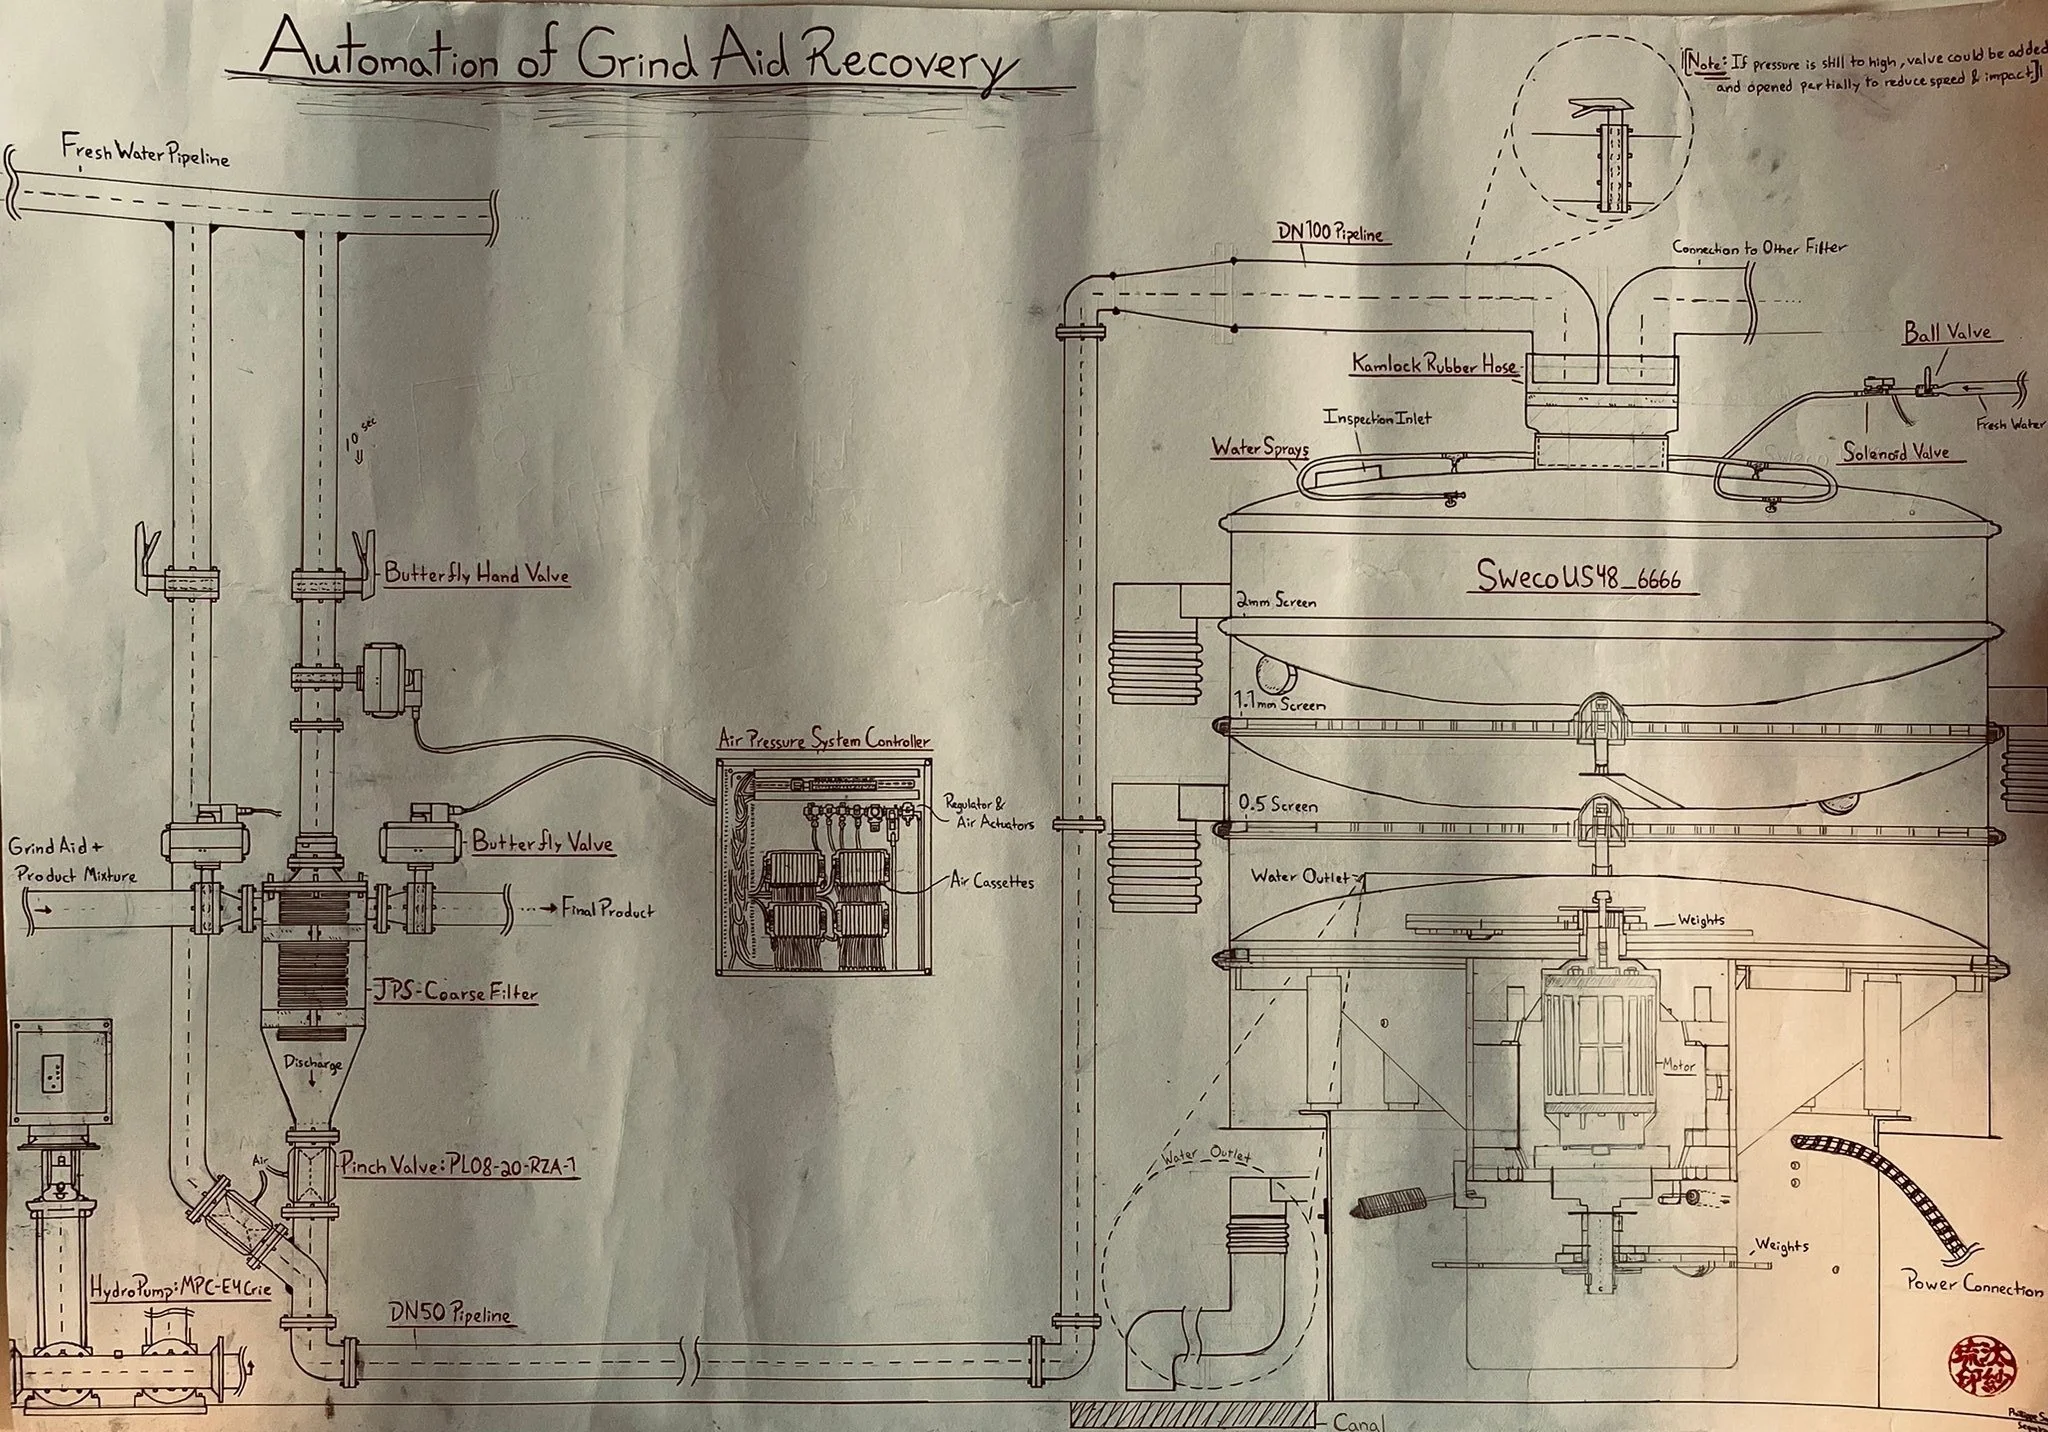 Automation of Grind Aid Recovery
[Note: If pressure is still to high, valve could be added
and opened partially to reduce speed & impact.]
Fresh Water Pipeline
DN100 Pipeline
Connection to Other Filter
Ball Valve
Kamlock Rubber Hose
Inspection Inlet
Fresh Water
Water Sprays
Solenoid Valve
Sweco
10 sec
Butterfly Hand Valve
SwecoUS48_6666
2mm Screen
1.1mm Screen
Air Pressure System Controller
0.5 Screen
Regulator &
Air Actuators
Grind Aid +
Product Mixture
Butterfly Valve
Air Cassettes
Water Outlet
Final Product
Weights
JPS-Coarse Filter
Discharge
Motor
Air
Pinch Valve: PL08-20-RZA-1
Water Outlet
Weights
HydroPump: MPC-E4Crie
Power Connection
DN50 Pipeline
Canal